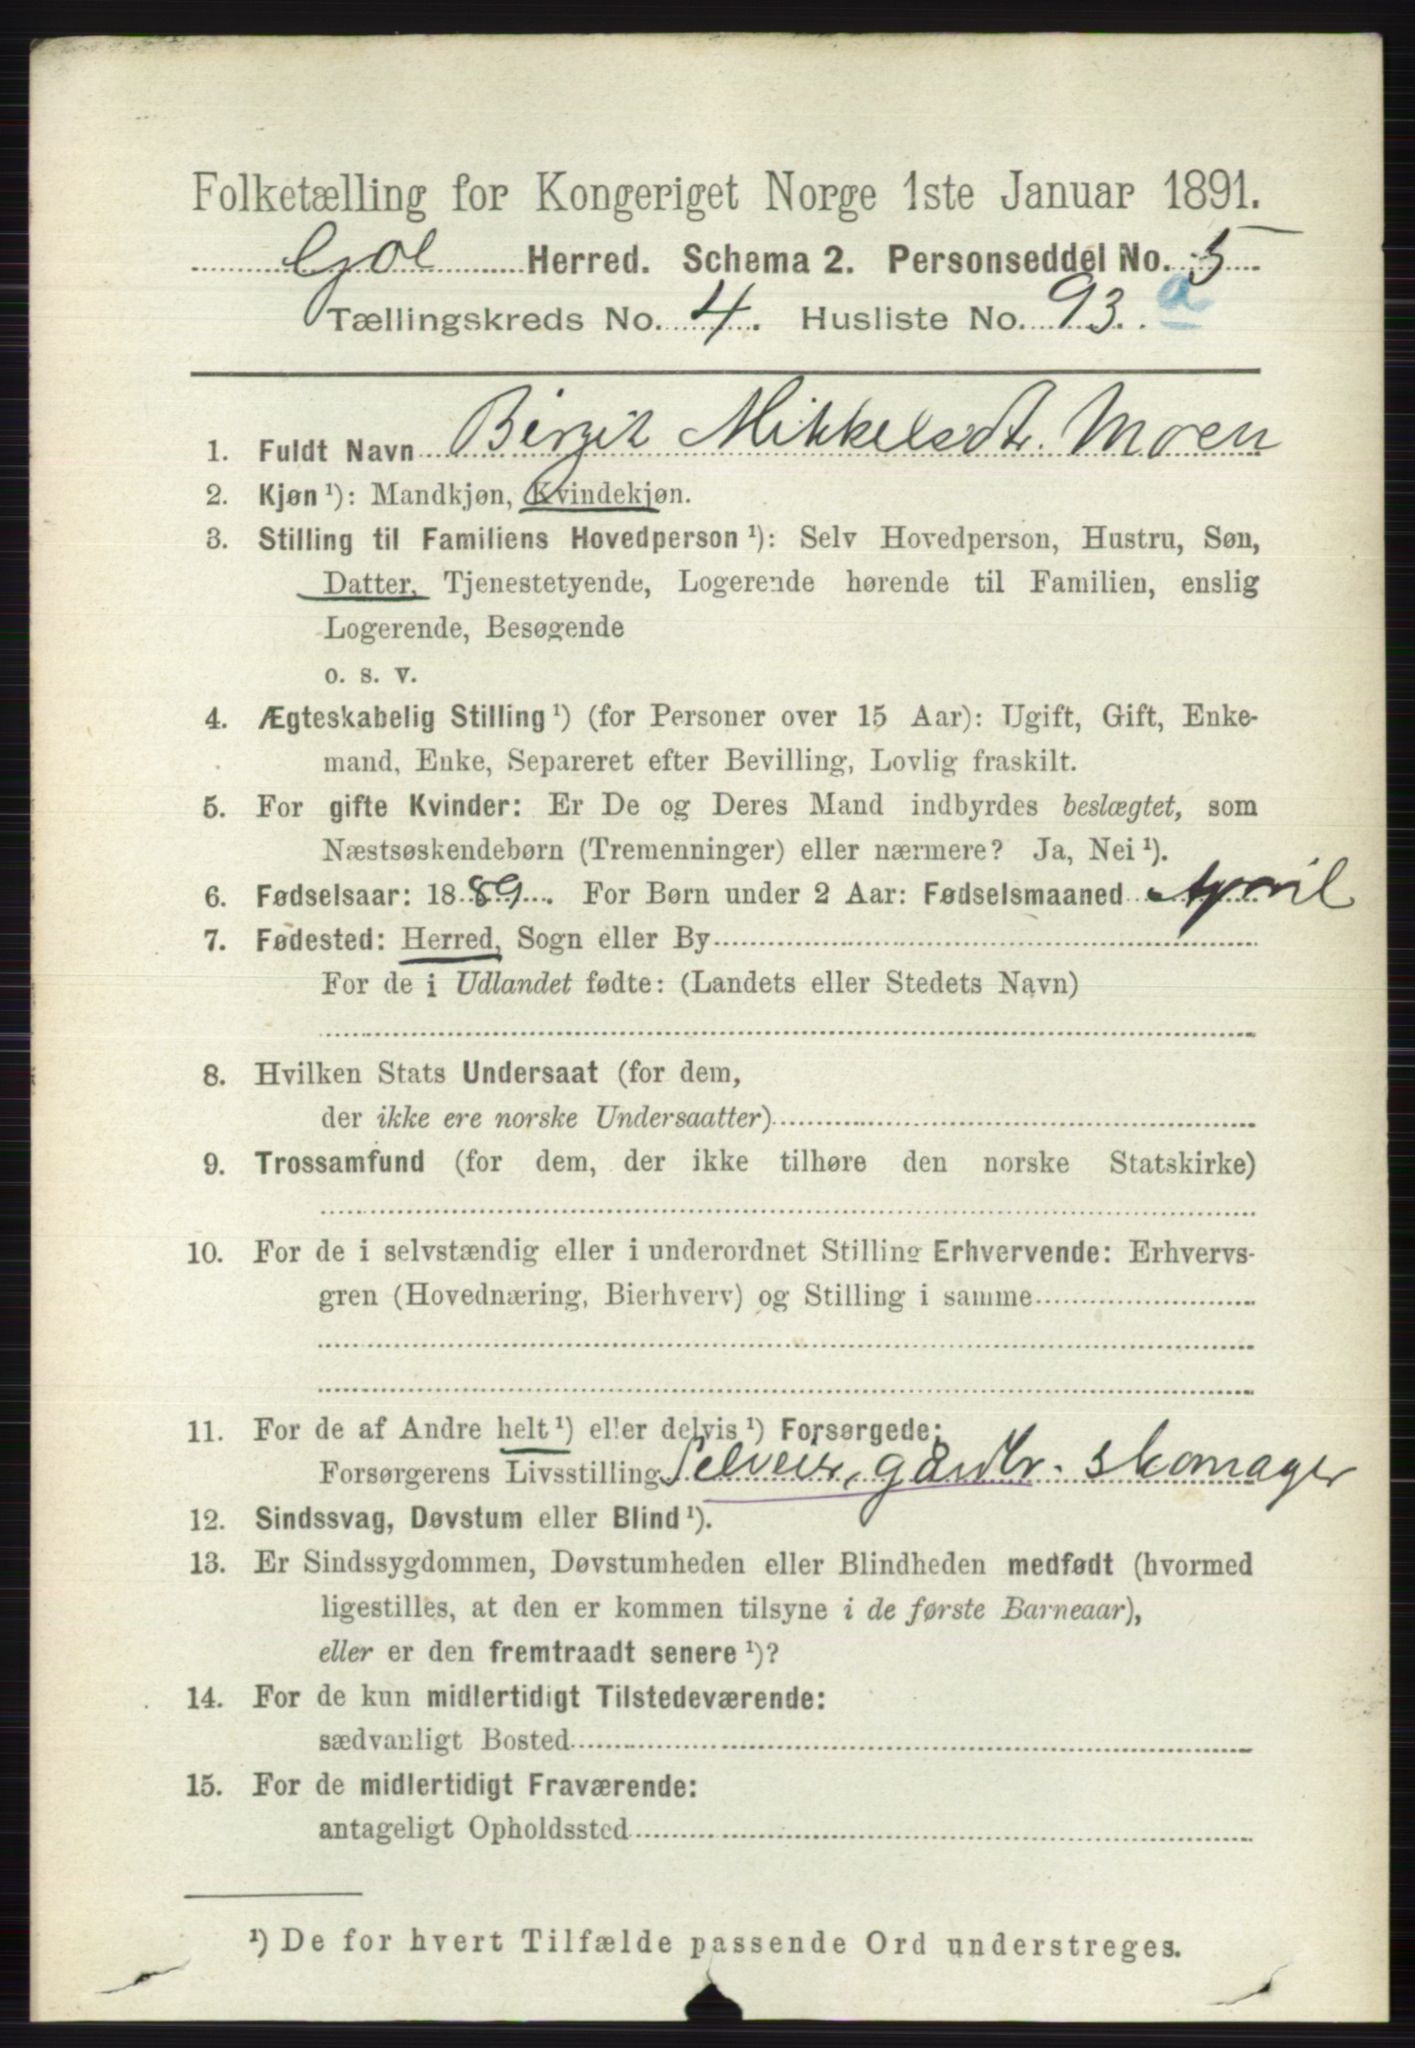 Folketælling for Kongeriget Norge 1ste Januar 1891.
Gol Herred. Schema 2. Personseddel No. 5
Tællingskreds No. 4. Husliste No. 93. a
1. Fuldt Navn Birgit Mikkelsdtr. Moen
2. Kjøn ¹): Mandkjøn, Kvindekjøn.
3. Stilling til Familiens Hovedperson ¹): Selv Hovedperson, Hustru, Søn,
Datter, Tjenestetyende, Logerende hørende til Familien, enslig
Logerende, Besøgende
o. s. v.
4. Ægteskabelig Stilling ¹) (for Personer over 15 Aar): Ugift, Gift, Enke-
mand, Enke, Separeret efter Bevilling, Lovlig fraskilt.
5. For gifte Kvinder: Er De og Deres Mand indbyrdes beslægtet, som
Næstsøskendebørn (Tremenninger) eller nærmere? Ja, Nei ¹).
6. Fødselsaar: 1889. For Børn under 2 Aar: Fødselsmaaned April
7. Fødested: Herred, Sogn eller By
For de i Udlandet fødte: (Landets eller Stedets Navn)
8. Hvilken Stats Undersaat (for dem,
der ikke ere norske Undersaatter)
9. Trossamfund (for dem, der ikke tilhøre den norske Statskirke)
10. For de i selvstændig eller i underordnet Stilling Erhvervende: Erhvervs-
gren (Hovednæring, Bierhverv) og Stilling i samme
11. For de af Andre helt ¹) eller delvis ¹) Forsørgede:
Forsørgerens Livsstilling Selveier, gårdbr. skomager
12. Sindssvag, Døvstum eller Blind ¹).
13. Er Sindssygdommen, Døvstumheden eller Blindheden medfødt (hvormed
ligestilles, at den er kommen tilsyne i de første Barneaar),
eller er den fremtraadt senere ¹)?
14. For de kun midlertidigt Tilstedeværende:
sædvanligt Bosted
15. For de midlertidigt Fraværende:
antageligt Opholdssted
¹) De for hvert Tilfælde passende Ord understreges.